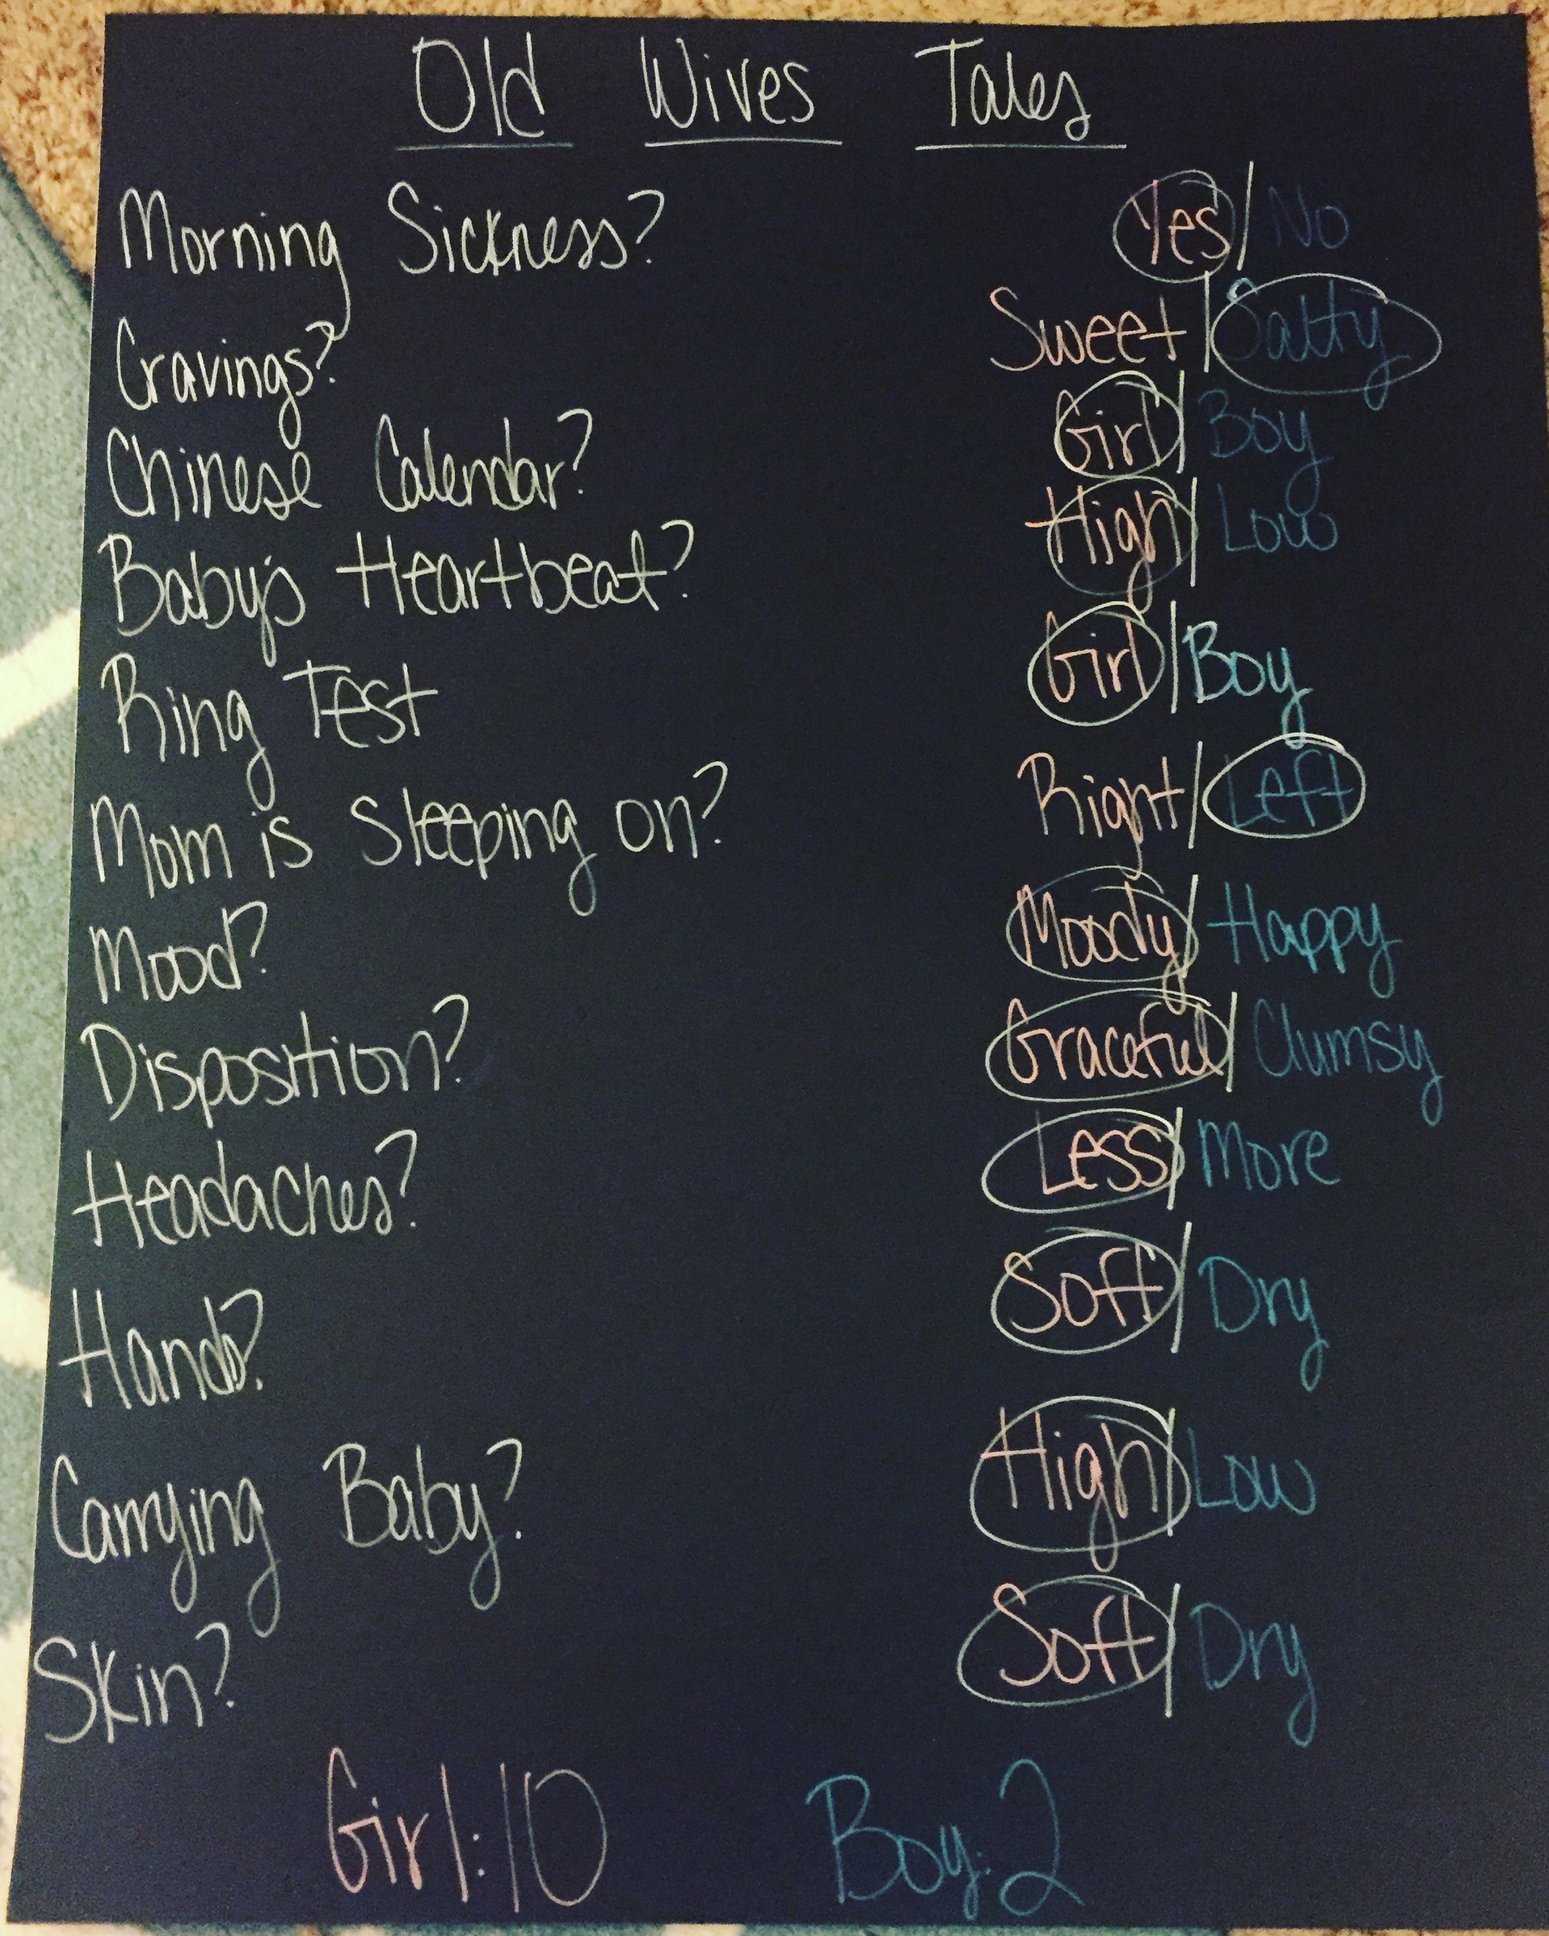 Old Wives Tales
Morning Sickness? Yes/No
Cravings? Sweet/Salty
Chinese Calendar? Girl/Boy
Baby's Heartbeat? High/Low
Ring Test Girl/Boy
Mom is sleeping on? Right/Left
Mood? Moody/Happy
Disposition? Graceful/Clumsy
Headaches? Less/More
Hands? Soft/Dry
Carrying Baby? High/Low
Skin? Soft/Dry
Girl:10 Boy:2